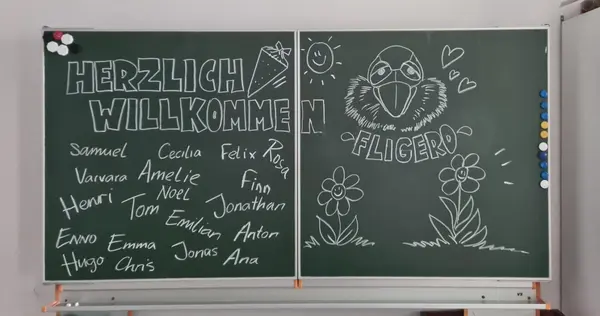 HERZLICH
WILLKOMMEN
FLIGERO
Samuel Cecilia Felix Rosa
Varvara Amelie Finn
Henri Tom Noel Jonathan
Emilian
Enno Emma Jonas Anton
Hugo Chris Ana